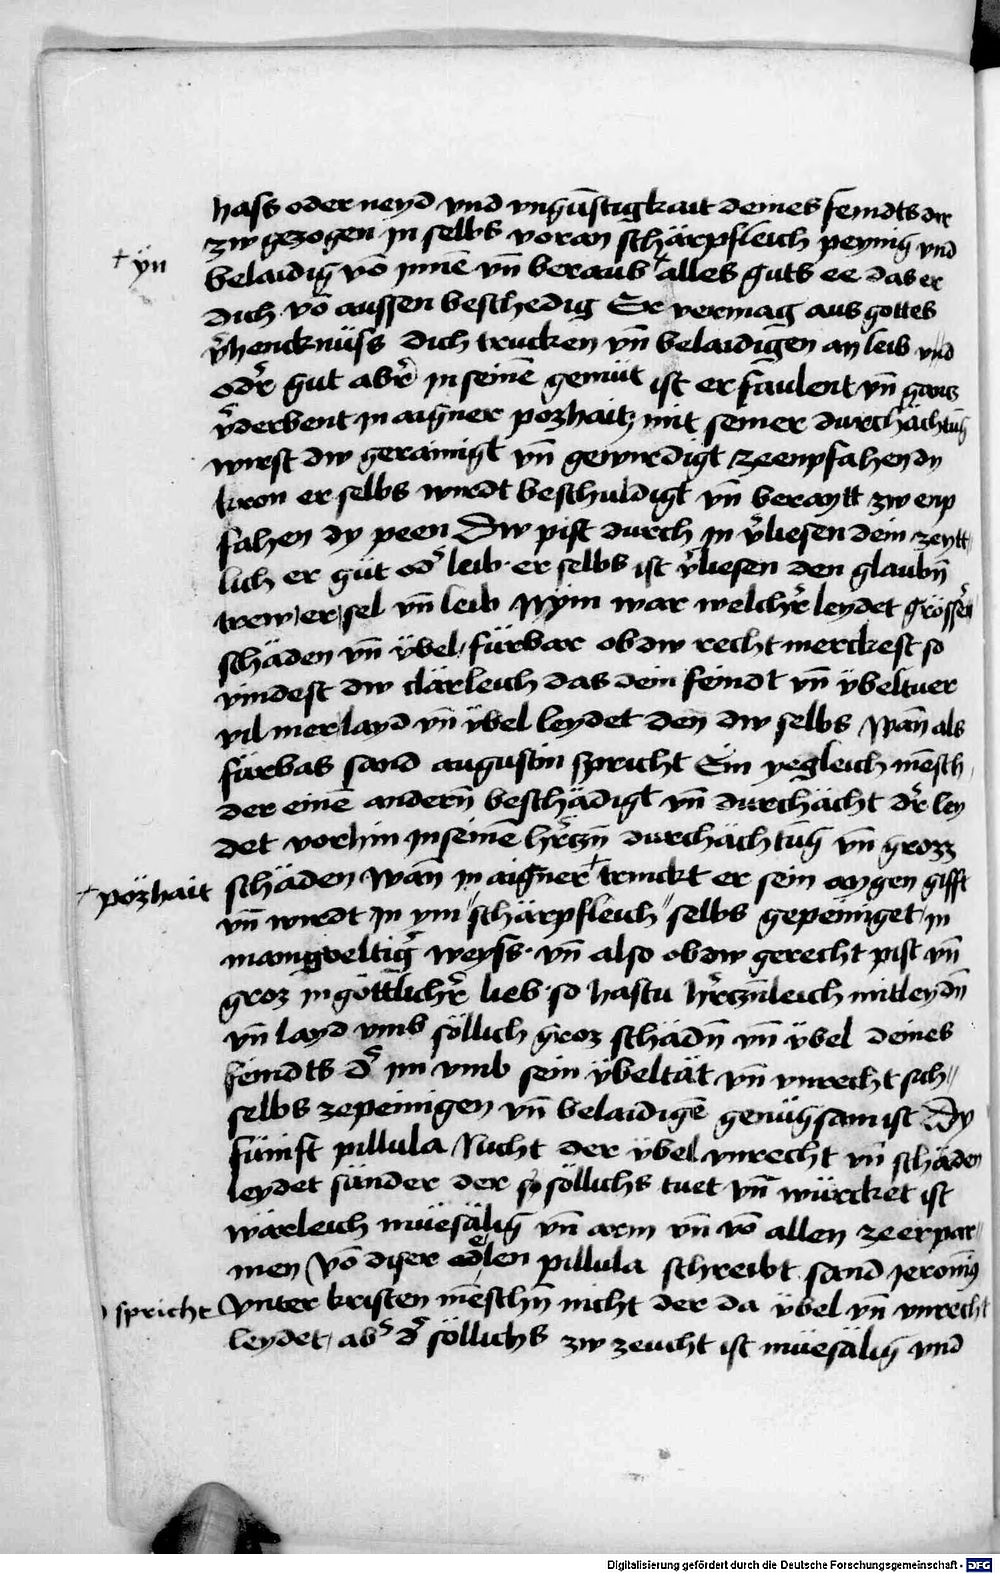 hass oder neyd vnd vngūstigkait deines feindts der
zw gezogen jn selbs voran schärpfleich peynig vnd
† ÿn
belaidig vō jnnē vn̄ beraub † alles guts ee das er
dich vō aussen beschedig Er vermag aus gottes
v̄hencknüss dich trucken vn̄ belaidigen an leib vnd
oder̄ gut aber̄ jn seinē gemüt ist er faulent vn̄ gancz
v̄derbent jn aigner pozhaitz mit seiner durchächtūg
wirst dw gerainigt vn̄ gewirdigt zeenpfahen dy
kron er selbs wirdt beschuldigt vn̄ beraytt zw enp
fahen dy peen Dw pist durch jn v̄liesen dein zeytt
lich er gut od̄ leib · er selbs ist v̄liesen den glaubn̄
trew er sel vn̄ leib Nym war welcher̄ leydet grössēr
schäden vn̄ ÿbel fürbar ob dw recht merckest so
vindest dw clärleich das dein feindt vn̄ ÿbeltuer
vil mer layd vn̄ ÿbel leydet den dw selbs Wān als
fürbas sand augustin spricht Ein yegleich mēsch
der einē andern̄ beschädigt vn̄ durchächt der̄ ley
det vorhin jn seinē her̄czn̄ durchächtūg vn̄ grozz
† pözhait
schäden Wān jn aigner † trinckt er sein aygen gifft
vn̄ wirdt jn ym schärpfleich selbs gepeiniget jn
manigueltiḡ weyss · vn̄ also ob dw gerecht pist vn̄
groz jn göttlicher̄ lieb · so hastu her̄cznleich mitleydn̄
vn̄ layd vmb söllich groz schädn̄ vn̄ ÿbel deines
feindts d̄ im vmb sein ÿbeltät vn̄ vnrecht sich
selbs zepeinigen vn̄ belaidigē genüghsam ist Dy
fünift pillula Nicht der ÿbel vnrecht vn̄ schäden
leydet sünder der so söllichs tuet vn̄ würcket ist
wärleich müesälig vn̄ arm vn̄ vō allen zeerpar
men Vō diser edlen pillula schreibt sand jeronimus
spricht
Vnter kristen mēschn̄ nicht der da übel vn̄ vnrecht
leydet ab̄ d̄ söllichs zw zeucht ist müesälig vnd
Digitalisierung gefördert durch die Deutsche Forschungsgemeinschaft - DFG